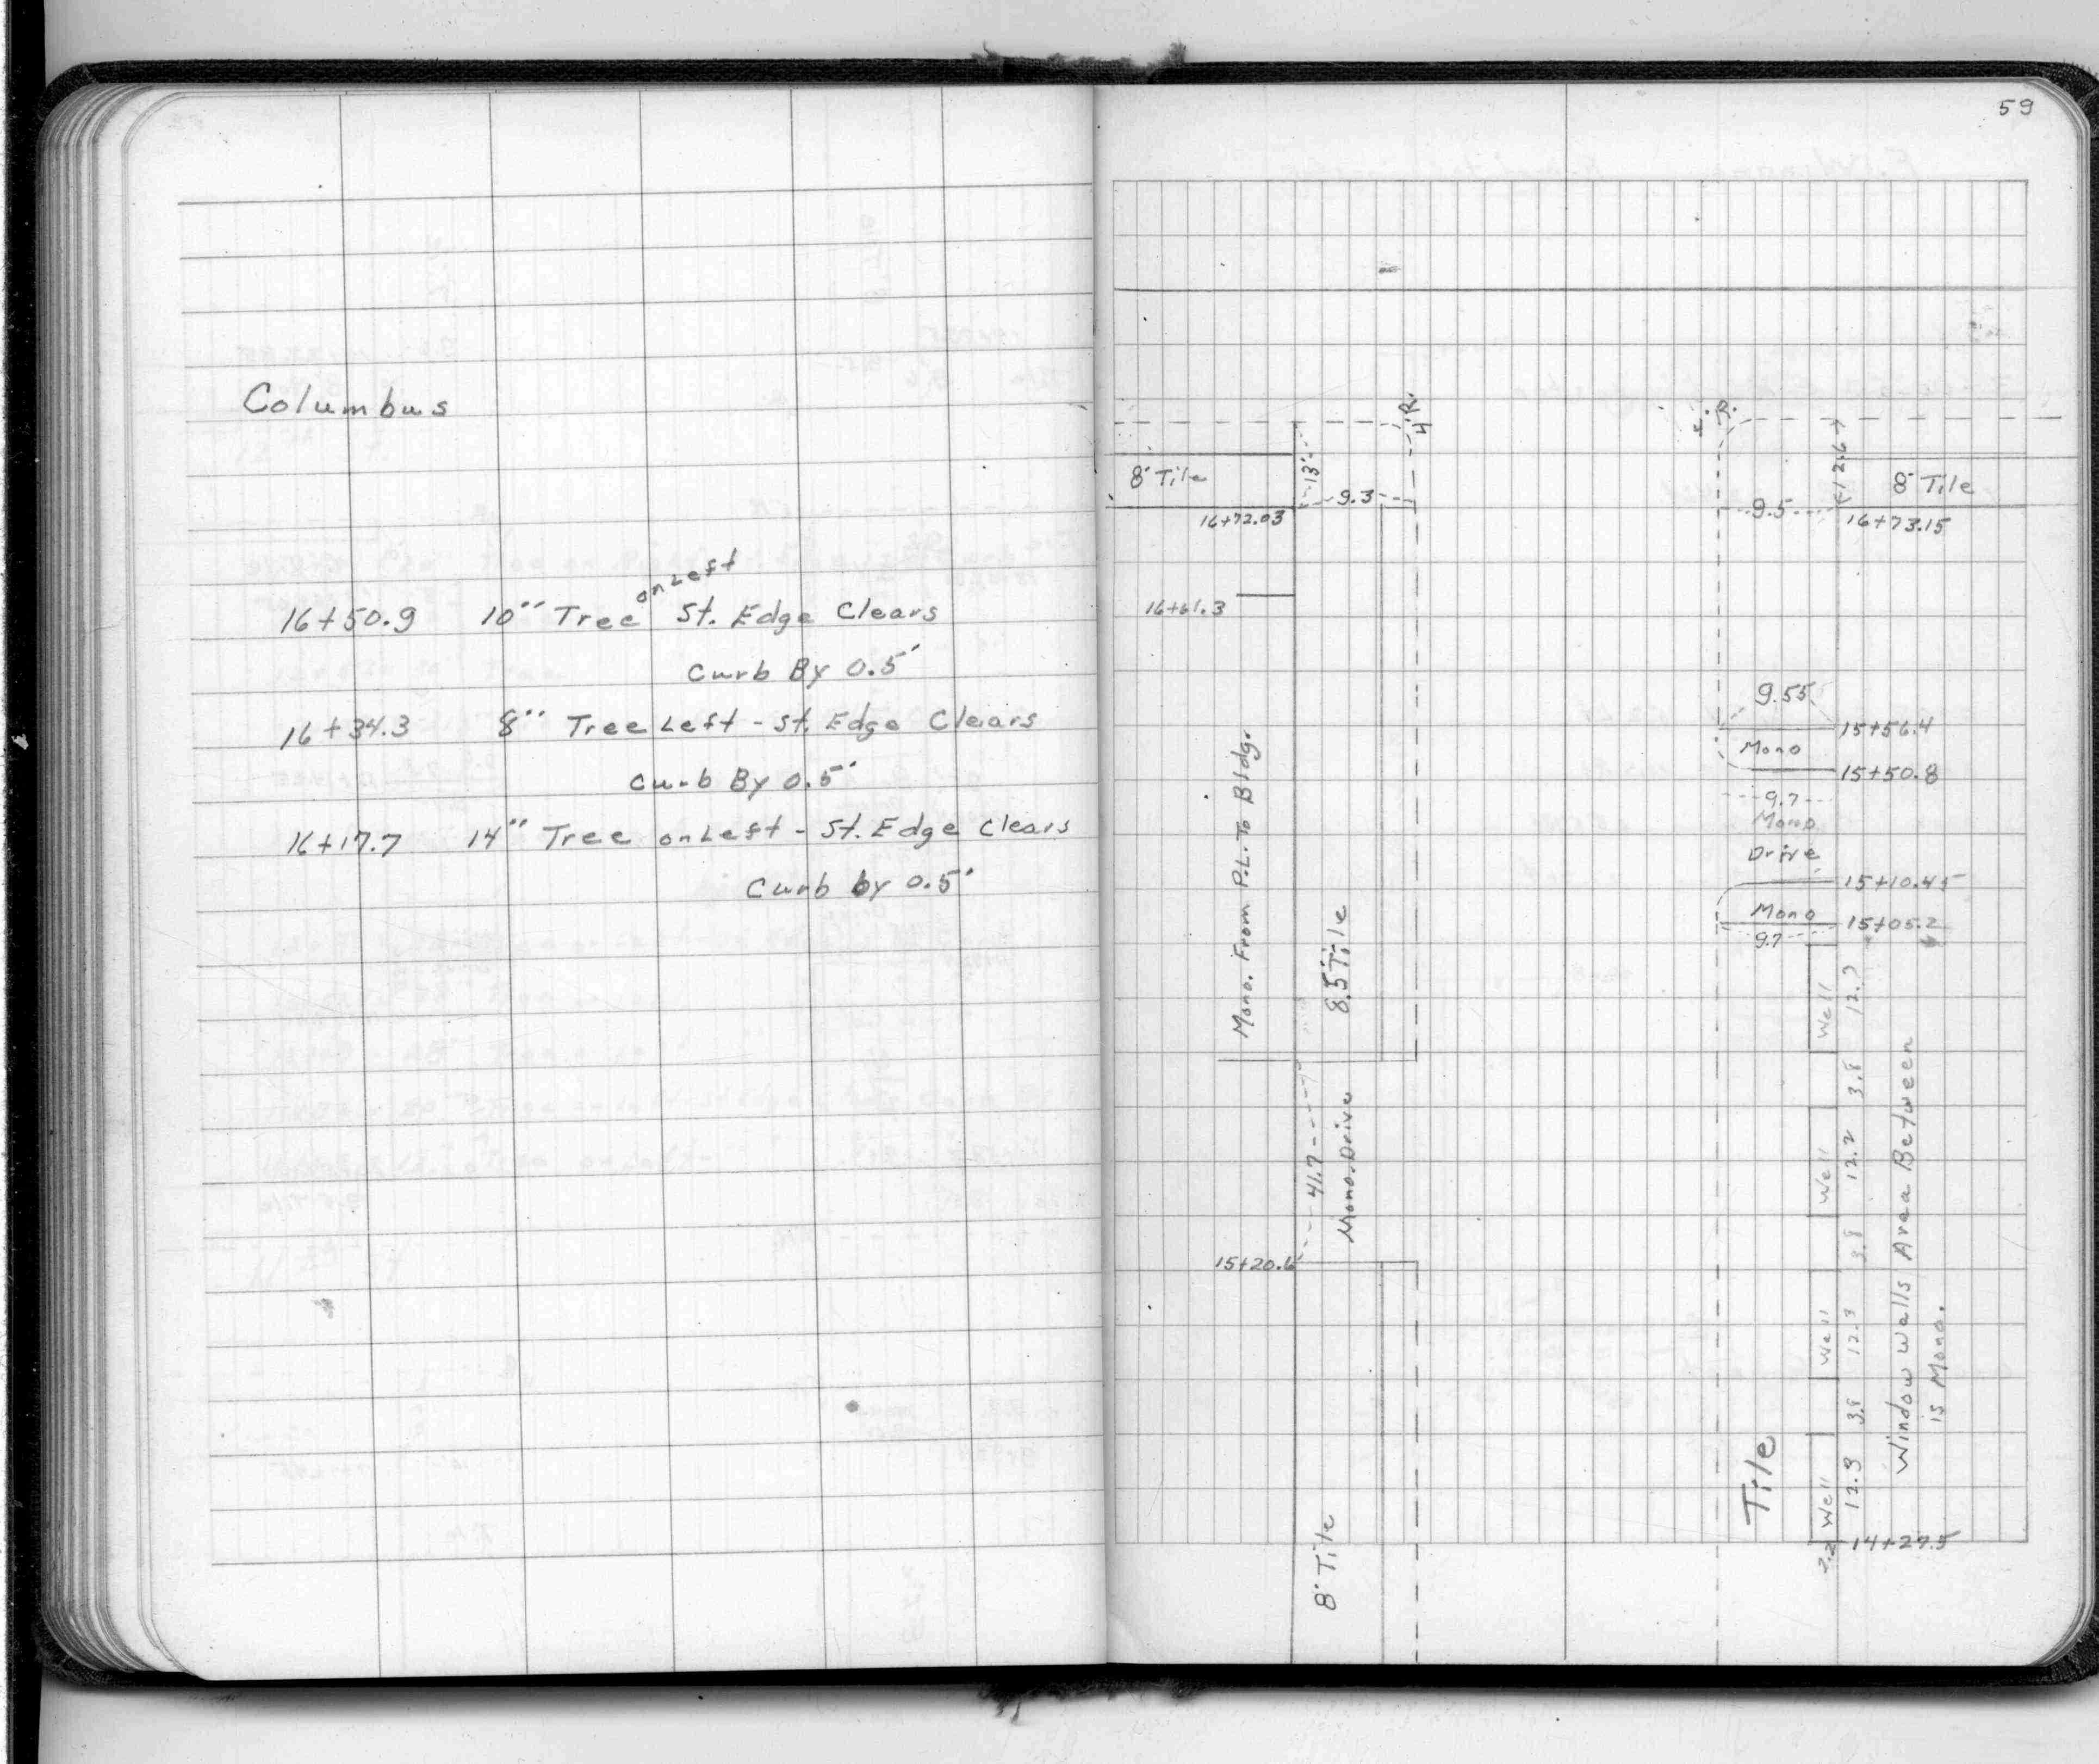 Columbus
on Left
16+50.9 10" Tree St. Edge Clears
Curb By 0.5'
16+34.3 8" Tree Left - St. Edge Clears
Curb By 0.5'
16+17.7 14" Tree on Left - St. Edge Clears
Curb by 0.5'
59
4' R.
R.
8' Tile
13'
9.3
16+72.03
16+61.3
Mono. From P.L. To Bldg.
8.5' Tile
41.7
Mono. Drive
15+20.6
8' Tile
12.6
8' Tile
9.5
16+73.15
9.55
15+56.4
Mono
15+50.8
9.7
Mono
Drive
15+10.45
Mono
15+05.2
9.7
Well
3.8
Well 12.2
3.8
Well 12.3
3.8
Well 12.3
Window Wells Area Between
is Mono.
Tile
2.2
14+27.5